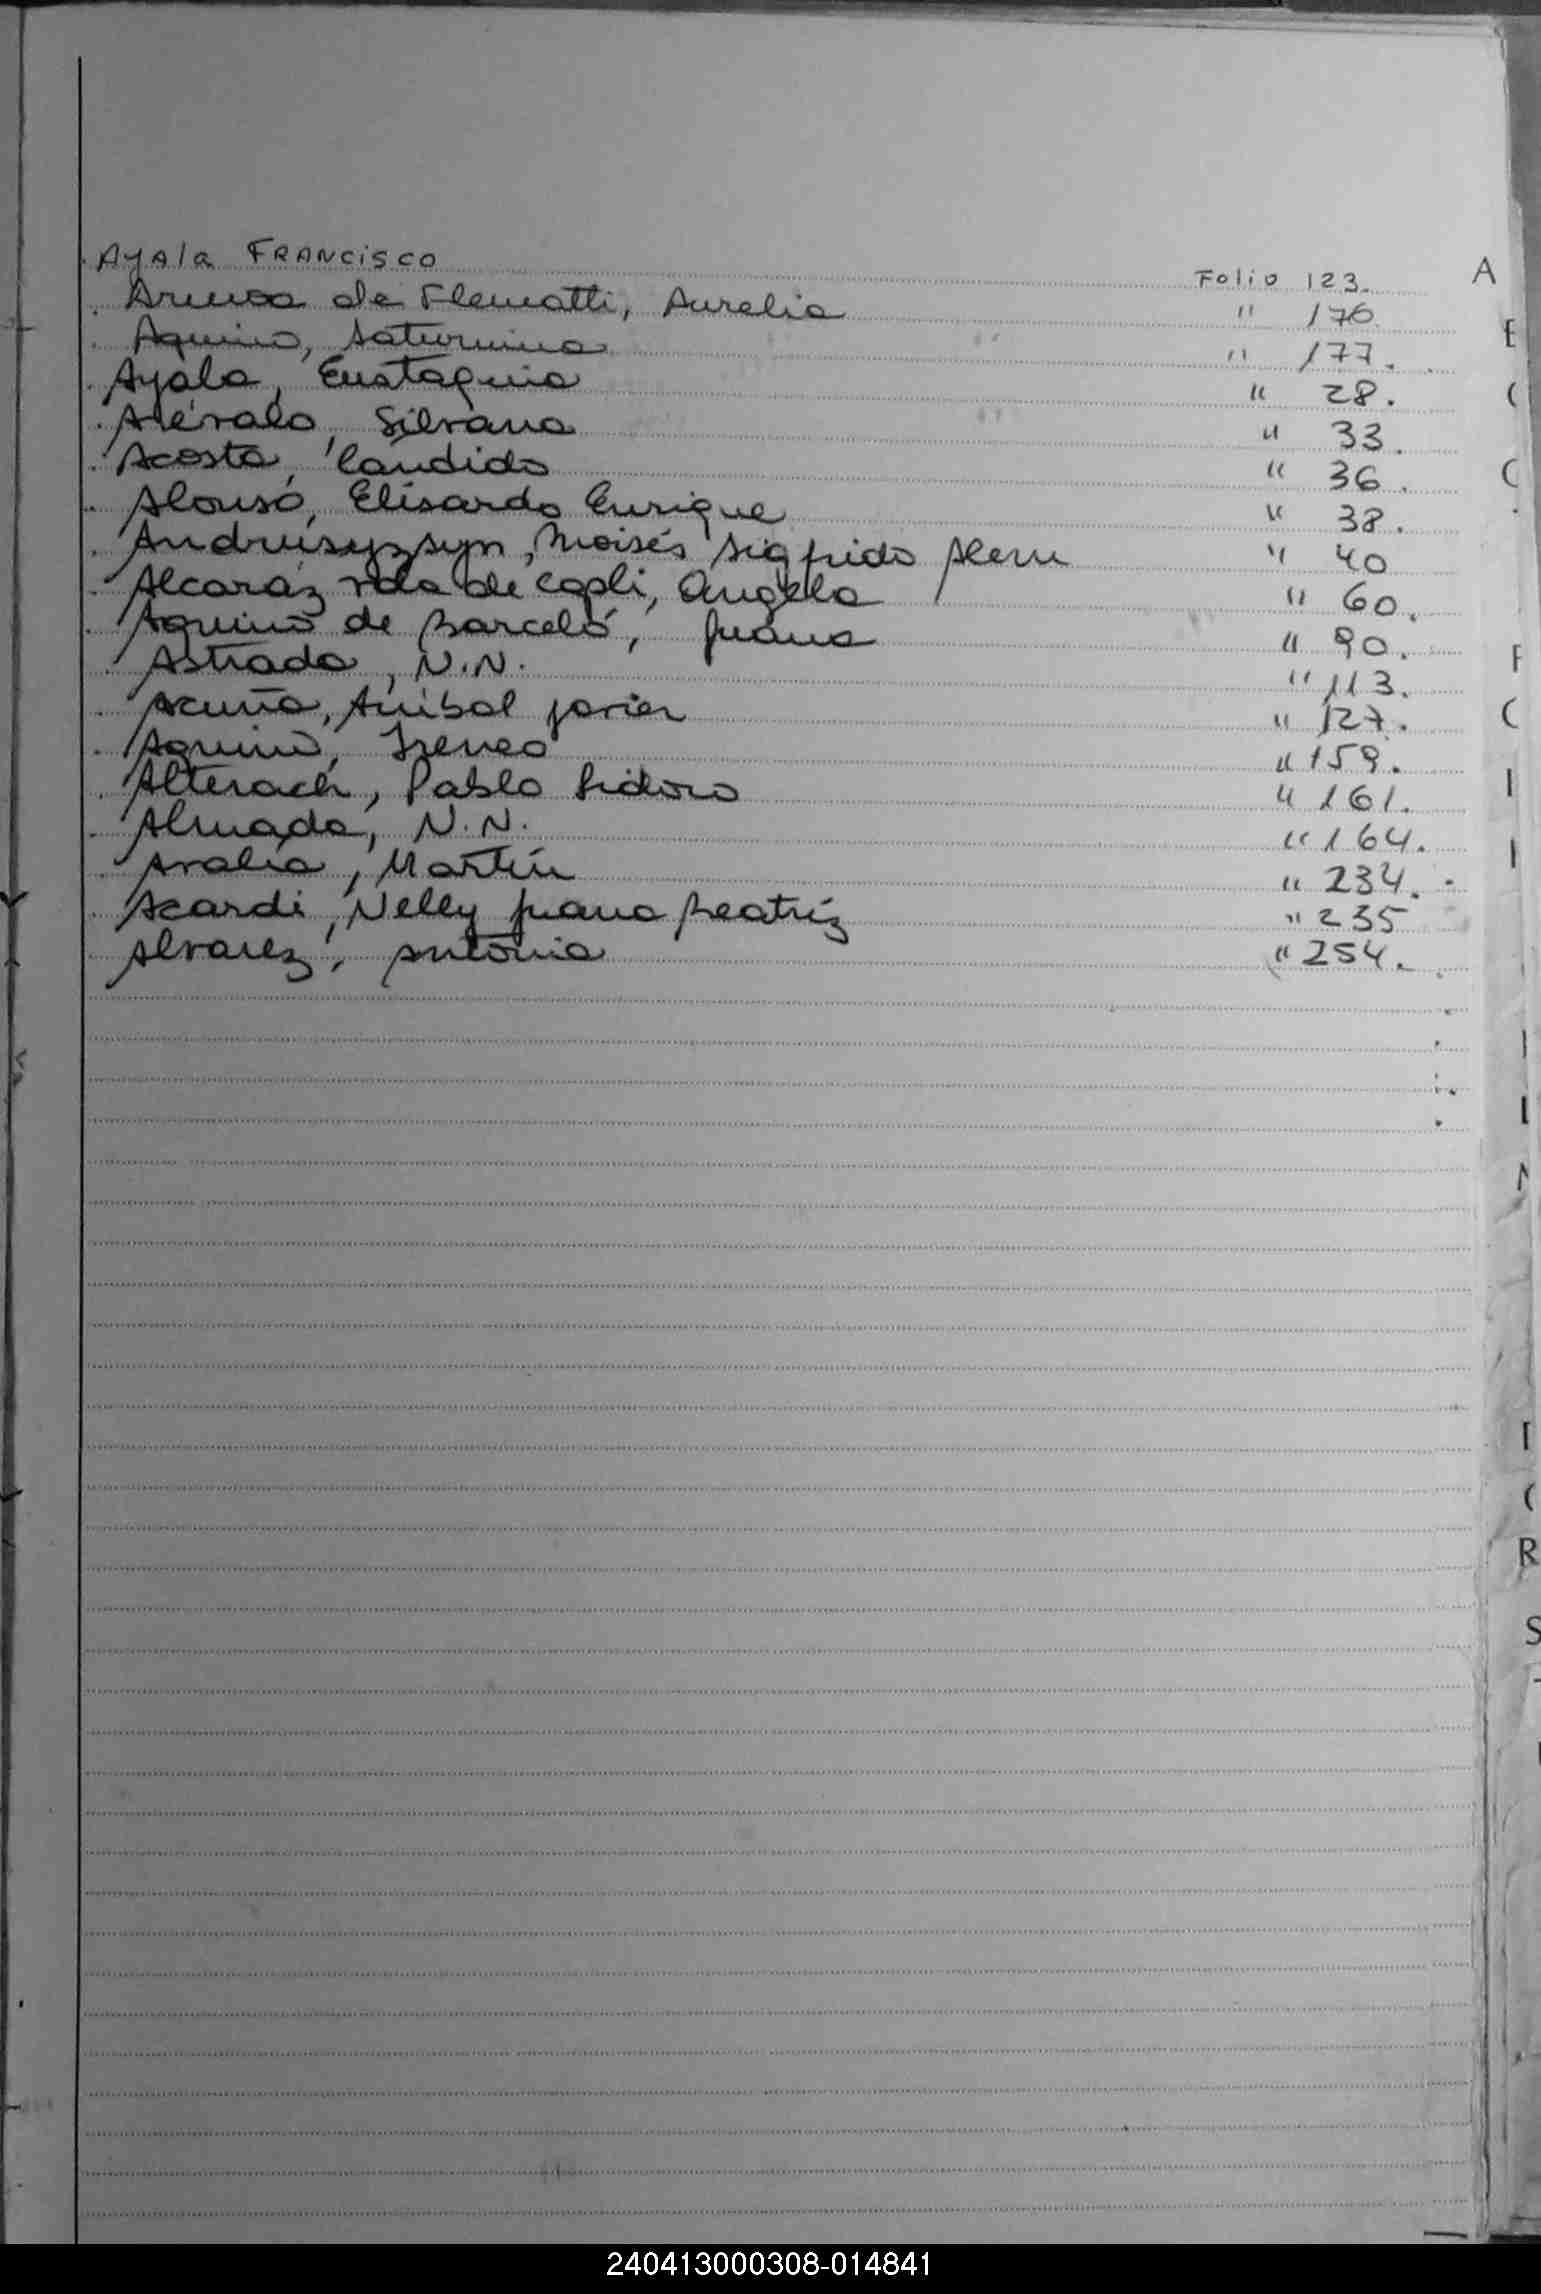 Ayala Francisco Folio 123. A
Armoa de Flematti, Aurelia " 176
Aquino, Saturnina " 177.
Ayala, Eustaquia " 28.
Arévalo, Silvana " 33.
Acosta, Candido " 36.
Alonso, Elisardo Enrique " 38.
Andrusyzsyn, Moisés Sigfrido Alem " 40
Alcaráz vda de Copli, Angela " 60.
Aquino de Barceló, Juana " 90.
Astrada, N.N. " 113.
Acuña, Anibal Javier " 127.
Aquino, Ireneo " 159.
Alterach, Pablo Isidoro " 161.
Almada, N.N. " 164.
Martín " 234.
Acardi, Nelly Juana Beatríz " 235
Alvarez, Antonia " 254.
R
S
240413000308-014841